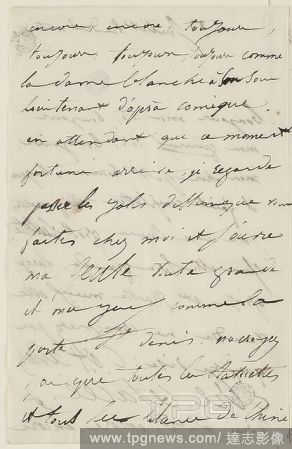 encore, encore, toujours,
toujours, toujours, toujours comme
la dame blanche à son Sou
lieutenant d'opra comique.
en attendant que ce moment
fortuné arrive, je regarde
passer les
faites chez moi et j'ouvre
ma seule toute grande
et mes yeux comme la
porte St denis. ne croyez
pas que toutes les
et tous les de Chine
TPG
www.tpgnews.com / 達志影像